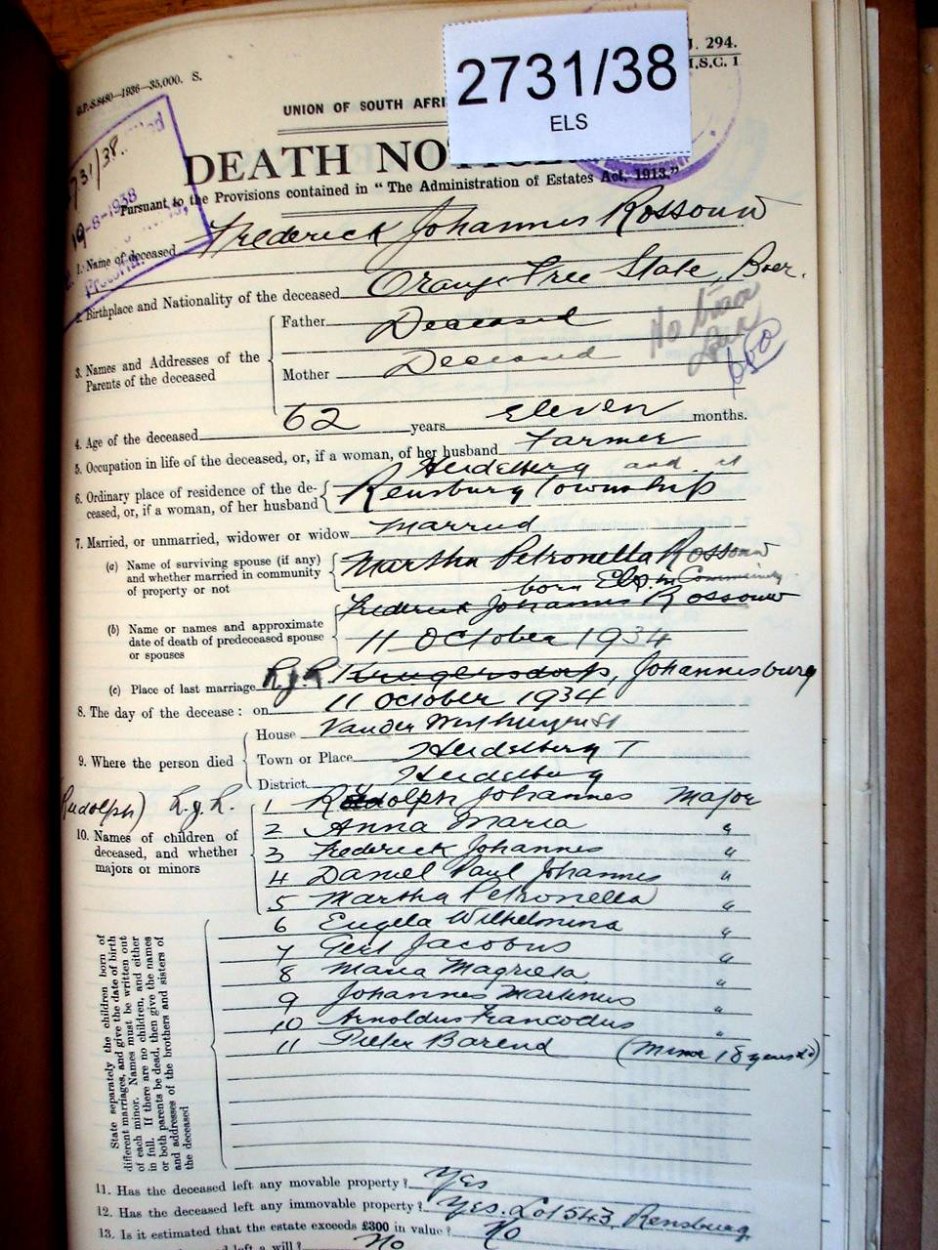 G.P.-S.8480—1936—35,000. S.
J. 294.
M.S.C. 1
2731/38
ELS
UNION OF SOUTH AFRI
731/38.
19-8-1938
DEATH NOTICE
Pursuant to the Provisions contained in "The Administration of Estates Act, 1913."
1. Name of deceased Frederick Johannes Rossouw
2. Birthplace and Nationality of the deceased Orange Free State, Boer.
3. Names and Addresses of the Parents of the deceased
Father Deceased
Mother Deceased
No trace
4. Age of the deceased 62 years eleven months.
5. Occupation in life of the deceased, or, if a woman, of her husband Farmer
6. Ordinary place of residence of the deceased, or, if a woman, of her husband
Heidelberg and at
Rensburg Township
7. Married, or unmarried, widower or widow Married
(a) Name of surviving spouse (if any) and whether married in community of property or not
Martha Petronella Rossouw
born Els in Community
(b) Name or names and approximate date of death of predeceased spouse or spouses
Frederick Johannes Rossouw
11 October 1934
(c) Place of last marriage Krugersdorp, Johannesburg
8. The day of the decease: on 11 October 1934
9. Where the person died
House
Town or Place Heidelberg T
District Heidelberg
(Rudolph)
10. Names of children of deceased, and whether majors or minors
1 Rudolph Johannes Major
2 Anna Maria "
3 Frederick Johannes "
4 Daniel Paul Johannes "
5 Martha Petronella "
6 Engela Wilhelmina "
7 Gert Jacobus "
8 Maria Magrieta "
9 Johannes Martinus "
10 Arnoldus Francodus "
11 Pieter Barend (Minor 18 years
State separately the children born of
different marriages, and give the date of birth
of each minor. Names must be written out
in full. If there are no children, and either
or both parents be dead, then give the names
and addresses of the brothers and sisters of
the deceased
11. Has the deceased left any movable property? Yes
12. Has the deceased left any immovable property? Yes. Lot 543 Rensburg
13. Is it estimated that the estate exceeds £300 in value? No
left a will? No